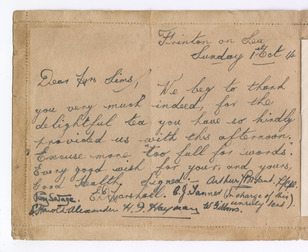 Frinton on Sea
Sunday 1st Oct 14
Dear Mrs Sims,
We beg to thank
you very much indeed, for the
delightful tea you have so kindly
provided us with this afternoon.
Excuse more, "too full for words"
Every good wish for you, and yours,
Good Health, signed:- Arthur
Tom Savage. E. Marshall. E. J. Tanner (in charge of this
Arnold Alexander H. J. Hayman W. Gibbons. unruly lot)